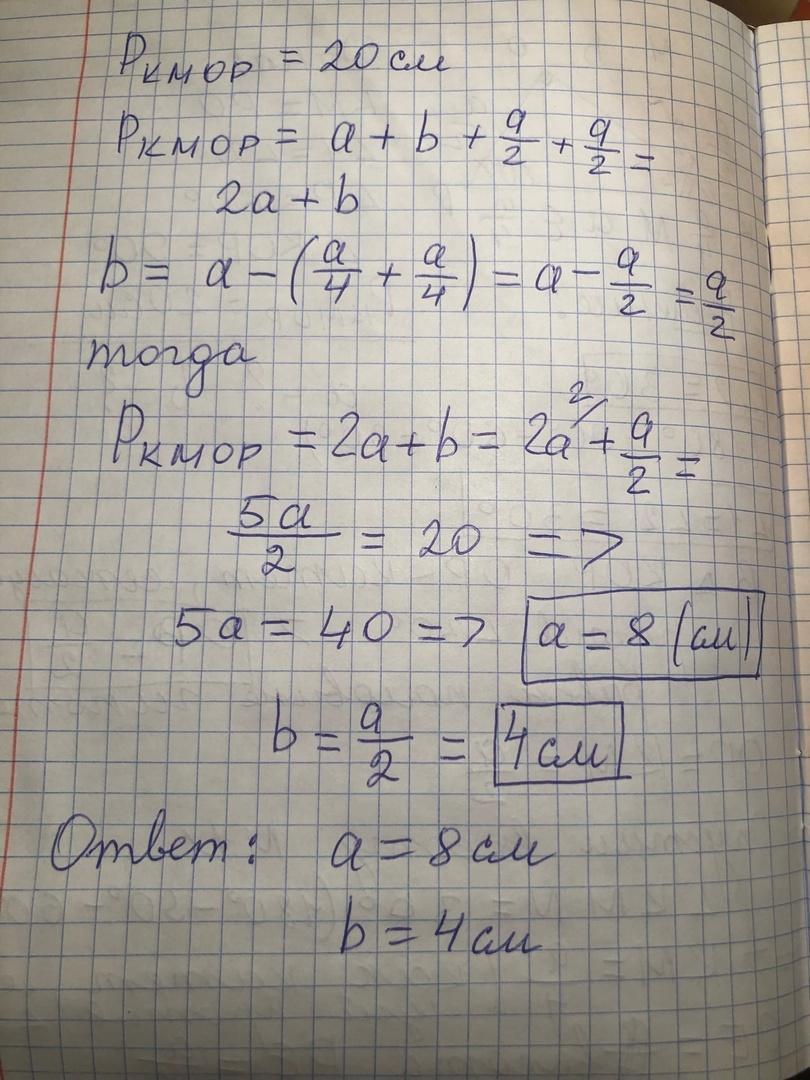 Pкмор = 20 см
Pкмор = a + b + a/2 + a/2 =
2a + b
b = a - (a/4 + a/4) = a - a/2 = a/2
тогда
Pкмор = 2a + b = 2a 2/ + a/2 =
5a/2 = 20 =>
5a = 40 => a = 8 (см)
b = a/2 = 4 см
Ответ: a = 8 см
b = 4 см